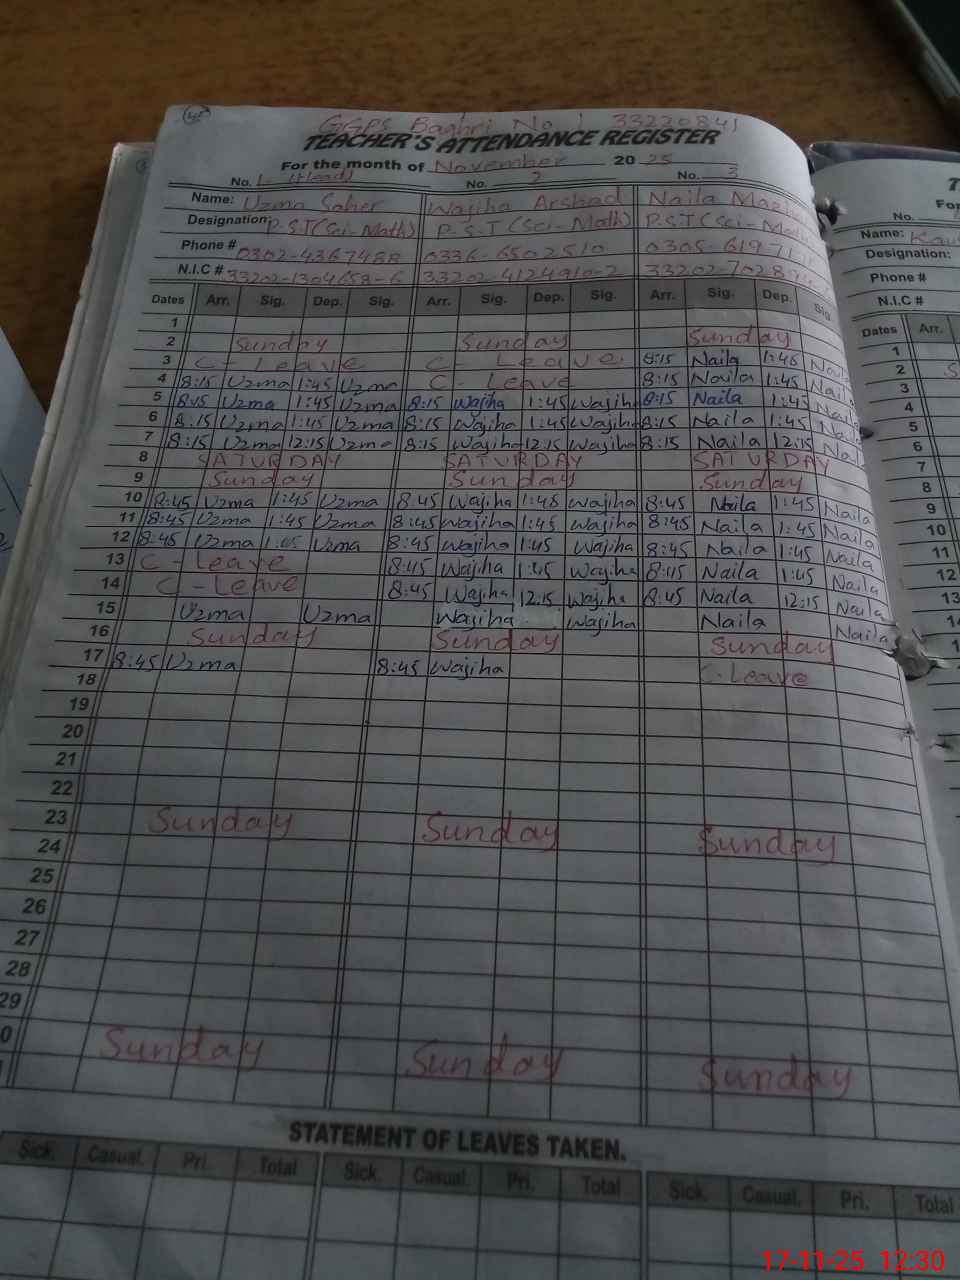 45
GGPS Baghri No. 1 33220841
TEACHER'S ATTENDANCE REGISTER
For the month of November 2025
No. 1 (Head) No. 2 No. 3
Name: Uzma Saher Wajiha Arshad Naila
Designation: P.S.T (Sci-Math) P.S.T (Sci-Math) P.S.T (Sci-
Phone # 0302-4367488 0336-6502510 0305-6197
N.I.C # 33202-1304658-6 33202-4124910-2 33202-7028
Dates Arr. Sig. Dep. Sig. Arr. Sig. Dep. Sig. Arr. Sig. Dep. Sig.
1
2 Sunday Sunday Sunday
3 C-Leave C-Leave 8:15 Naila 1:45 Naila
4 8:15 Uzma 1:45 Uzma C-Leave 8:15 Naila 1:45 Naila
5 8:15 Uzma 1:45 Uzma 8:15 Wajiha 1:45 Wajiha 8:15 Naila 1:45 Naila
6 8:15 Uzma 1:45 Uzma 8:15 Wajiha 1:45 Wajiha 8:15 Naila 1:45 Naila
7 8:15 Uzma 12:15 Uzma 8:15 Wajiha 12:15 Wajiha 8:15 Naila 12:15 Nai
8 SATURDAY SATURDAY SATURDAY
9 Sunday Sunday Sunday
10 8:45 Uzma 1:45 Uzma 8:45 Wajiha 1:45 Wajiha 8:45 Naila 1:45 Naila
11 8:45 Uzma 1:45 Uzma 8:45 Wajiha 1:45 Wajiha 8:45 Naila 1:45 Naila
12 8:45 Uzma 1:45 Uzma 8:45 Wajiha 1:45 Wajiha 8:45 Naila 1:45 Naila
13 C-Leave 8:45 Wajiha 1:45 Wajiha 8:45 Naila 1:45 Naila
14 C-Leave 8:45 Wajiha 12:15 Wajiha 8:45 Naila 12:15 Naila
15 Uzma Uzma Wajiha Wajiha Naila Naila
16 Sunday Sunday Sunday
17 8:45 Uzma 8:45 Wajiha C-Leave
18
19
20
21
22
23 Sunday Sunday Sunday
24
25
26
27
28
29
0 Sunday Sunday Sunday
STATEMENT OF LEAVES TAKEN.
Sick. Casual. Pri. Total Sick. Casual. Pri. Total Sick. Casual. Pri. Total
No.
Name:
Designation:
Phone #
N.I.C #
Dates Arr.
1
2 S
3
4
5
6
7
8
9
10
11
12
13
17-11-25 12:30